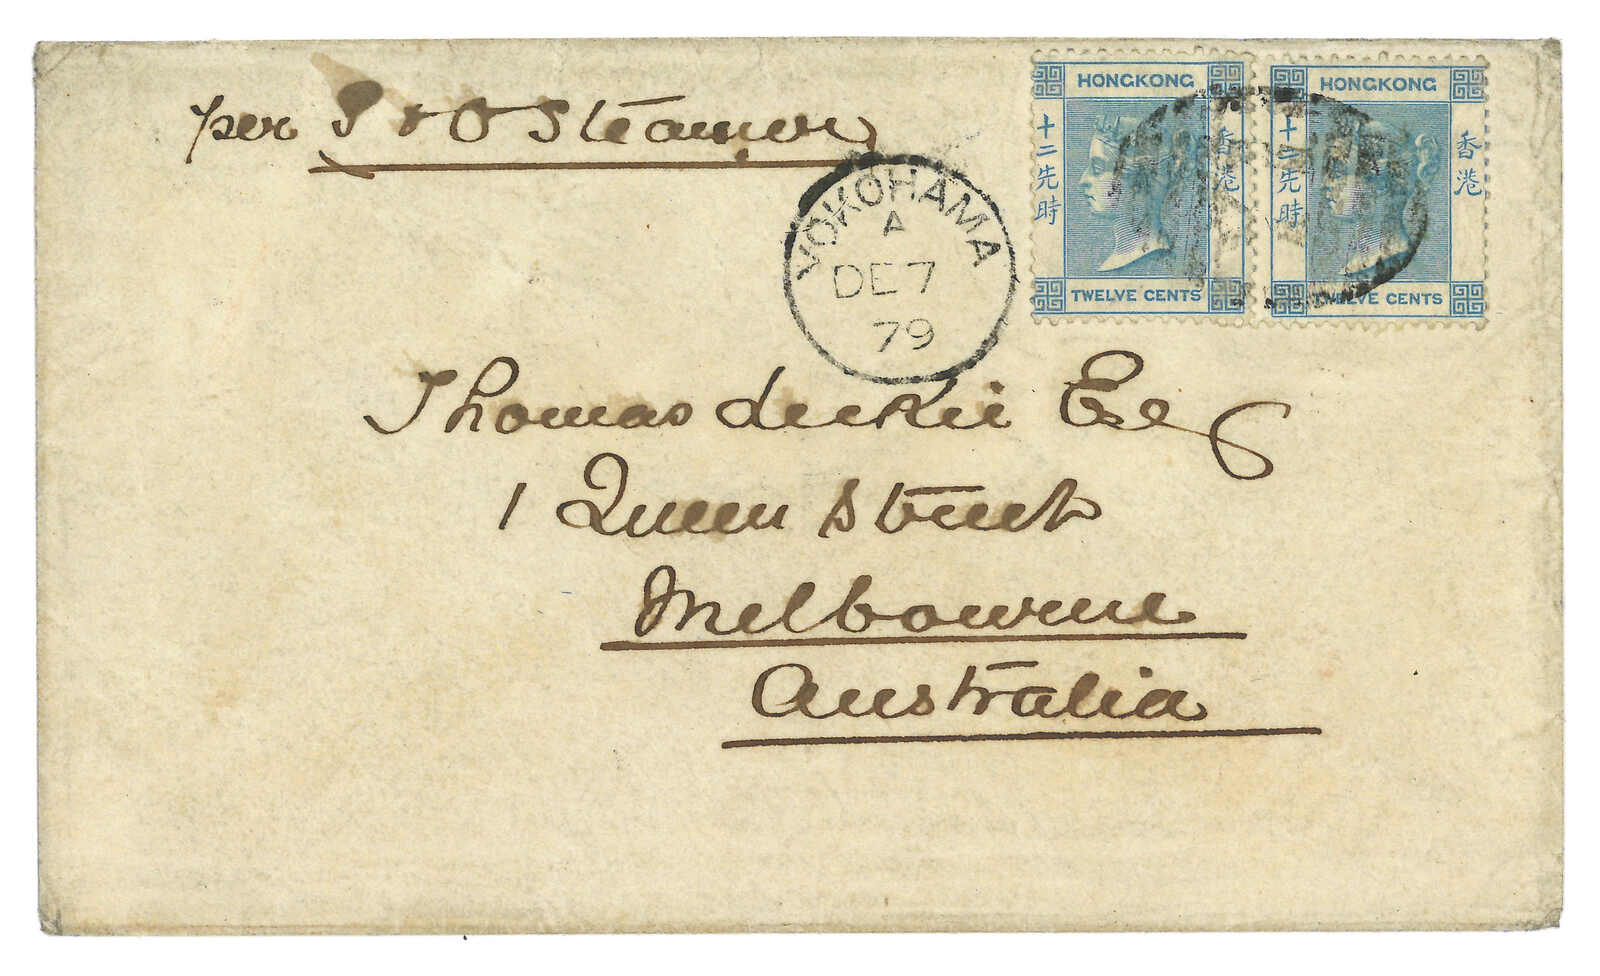 per P & O Steamer
HONGKONG
十二先時
香港
TWELVE CENTS
HONGKONG
十二先時
香港
TWELVE CENTS
YOKOHAMA
A
DE 7
79
Thomas Luckie Esq
1 Queen Street
Melbourne
Australia